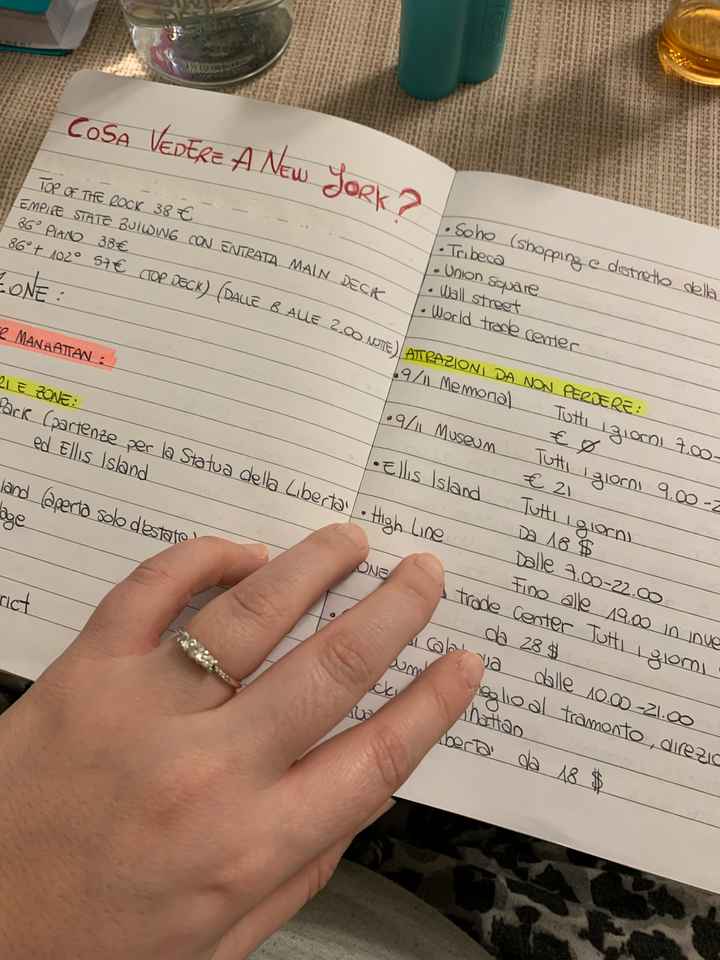 COSA VEDERE A NEW YORK?
TOP OF THE ROCK 38 €
EMPIRE STATE BUILDING CON ENTRATA MAIN DECK
86° PIANO 38€
86° + 102° 57€ (TOP DECK) (DALLE 8 ALLE 2.00 NOTTE)
ZONE:
MANHATTAN:
E ZONE:
Park (partenze per la Statua della Libertà
ed Ellis Island
(aperta solo d'estate)
• Soho (shopping e distretto della
• Tribeca
• Union square
• Wall street
• World trade center
ATTRAZIONI DA NON PERDERE:
• 9/11 Memorial Tutti i giorni 7.00-
€ 0
• 9/11 Museum Tutti i giorni 9.00-2
€ 21
• Ellis Island Tutti i giorni
Da 18 $
• High Line Dalle 7.00-22.00
Fino alle 19.00 in inve
trade center Tutti i giorni
da 28 $
dalle 10.00-21.00
al tramonto, direzio
da 18 $